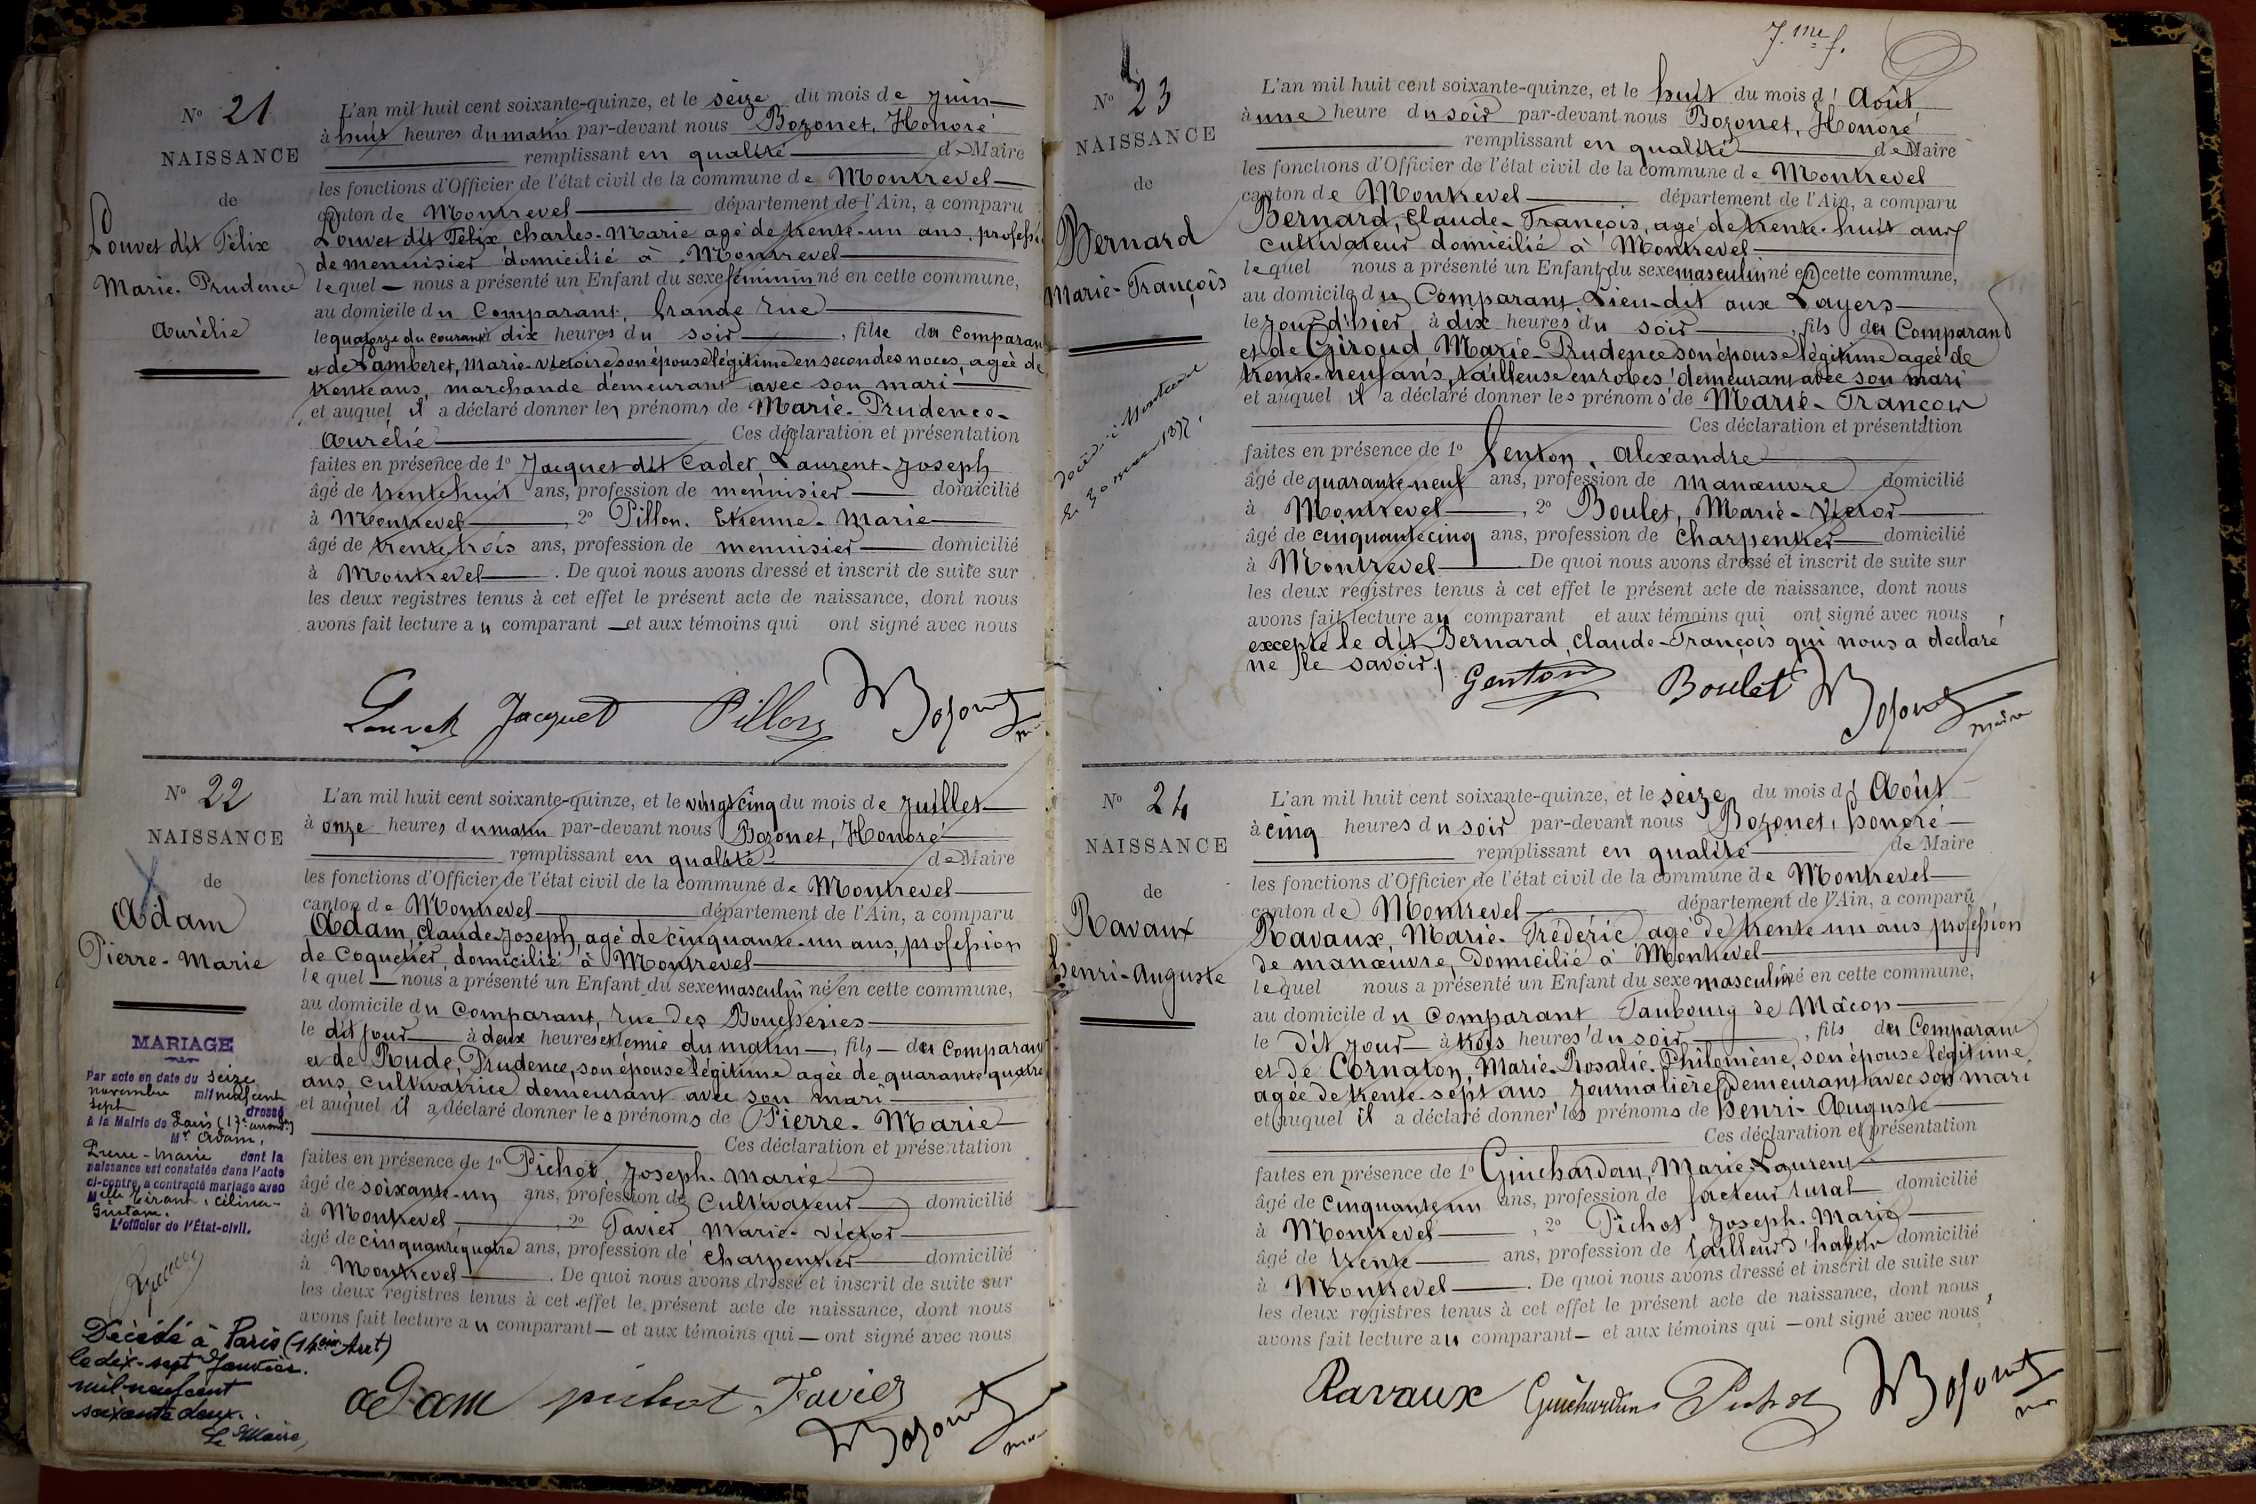 N° 21
NAISSANCE
de
Louvet dit Félix
Marie-Prudence
Aurélie
L'an mil huit cent soixante-quinze, et le seize du mois de Juin
à huit heures du matin par-devant nous Bozonet, Honoré
remplissant en qualité de Maire
les fonctions d'Officier de l'état civil de la commune de Montrevel
canton de Montrevel département de l'Ain, a comparu
Louvet dit Félix, Charles-Marie agé de trente-un ans, professi
de menuisier domicilié à Montrevel
lequel nous a présenté un Enfant du sexe féminin né en cette commune,
au domicile du Comparant, Grande rue
le quatorze du courant à dix heures du soir, fille du Comparan
et de Lamberet, Marie-Victoire son épouse légitime en secondes noces, agée de
trente ans, marchande demeurant avec son mari
et auquel il a déclaré donner les prénoms de Marie-Prudence-
Aurélie Ces déclaration et présentation
faites en présence de 1° Jacquet dit Cadet, Laurent-Joseph
âgé de trente huit ans, profession de menuisier domicilié
à Montrevel, 2° Pillon, Etienne-Marie
âgé de trente trois ans, profession de menuisier domicilié
à Montrevel. De quoi nous avons dressé et inscrit de suite sur
les deux registres tenus à cet effet le présent acte de naissance, dont nous
avons fait lecture au comparant et aux témoins qui ont signé avec nous
Louvet Jacquet Pillon Bozonet
N° 22
NAISSANCE
de
Adam
Pierre-Marie
MARIAGE
Par acte en date du seize
novembre mil neuf cent
sept dressé
à la Mairie de Paris (17e arrondt)
Mr Adam,
Pierre-Marie dont la
naissance est constatée dans l'acte
ci-contre, a contracté mariage avec
Melle Tirant, Célina-
L'officier de l'État-civil.
Décédé à Paris (14ème Arrt)
le dix-sept Janvier
mil neuf cent
soixante deux.
Le Maire,
L'an mil huit cent soixante-quinze, et le vingt cinq du mois de Juillet
à onze heures du matin par-devant nous Bozonet, Honoré
remplissant en qualité de Maire
les fonctions d'Officier de l'état civil de la commune de Montrevel
canton de Montrevel département de l'Ain, a comparu
Adam, Claude-Joseph, agé de cinquante-un ans, profession
de Coquetier, domicilié à Montrevel
lequel nous a présenté un Enfant du sexe masculin né en cette commune,
au domicile du Comparant, rue des Boucheries
le dit jour à deux heures et demie du matin, fils du Comparan
et de Rude, Prudence, son épouse légitime agée de quarante quatre
ans, cultivatrice demeurant avec son mari
et auquel il a déclaré donner les prénoms de Pierre-Marie
Ces déclaration et présentation
faites en présence de 1° Pichot, Joseph-Marie
âgé de soixante-un ans, profession de Cultivateur domicilié
à Montrevel, 2° Favier Marie-Victor
âgé de cinquante quatre ans, profession de charpentier domicilié
à Montrevel. De quoi nous avons dressé et inscrit de suite sur
les deux registres tenus à cet effet le présent acte de naissance, dont nous
avons fait lecture au comparant et aux témoins qui ont signé avec nous
adam pichot Favier Bozonet
7.me f.
N° 23
NAISSANCE
de
Bernard
Marie-François
L'an mil huit cent soixante-quinze, et le huit du mois d'Août
à une heure du soir par-devant nous Bozonet, Honoré
remplissant en qualité de Maire
les fonctions d'Officier de l'état civil de la commune de Montrevel
canton de Montrevel département de l'Ain, a comparu
Bernard, Claude-François, agé de trente-huit ans
cultivateur domicilié à Montrevel
lequel nous a présenté un Enfant du sexe masculin né en cette commune,
au domicile du Comparant Lieu-dit aux Layers
le jour d'hier à dix heures du soir, fils du Comparant
et de Giroud, Marie-Prudence son épouse légitime agée de
trente-neuf ans, tailleuse en robes demeurant avec son mari
et auquel il a déclaré donner les prénoms de Marie-François
Ces déclaration et présentation
faites en présence de 1° Genton, Alexandre
âgé de quarante-neuf ans, profession de manœuvre domicilié
à Montrevel, 2° Boulet, Marie-Victor
âgé de cinquante cinq ans, profession de charpentier domicilié
à Montrevel. De quoi nous avons dressé et inscrit de suite sur
les deux registres tenus à cet effet le présent acte de naissance, dont nous
avons fait lecture au comparant et aux témoins qui ont signé avec nous
excepté le dit Bernard, Claude-François qui nous a déclaré
ne le savoir.
Genton Boulet Bozonet maire
N° 24
NAISSANCE
de
Ravaux
Henri-Auguste
L'an mil huit cent soixante-quinze, et le seize du mois d'Août
à cinq heures du soir par-devant nous Bozonet, honoré
remplissant en qualité de Maire
les fonctions d'Officier de l'état civil de la commune de Montrevel
canton de Montrevel département de l'Ain, a comparu
Ravaux, Marie-Frédéric agé de trente un ans profession
de manœuvre, domicilié à Montrevel
lequel nous a présenté un Enfant du sexe masculin né en cette commune,
au domicile du Comparant Faubourg de Mâcon
le dit jour à trois heures du soir, fils du Comparant
et de Cornaton, Marie-Rosalie-Philomène, son épouse légitime
agée de trente-sept ans Journalière demeurant avec son mari
et auquel il a déclaré donner les prénoms de Henri-Auguste
Ces déclaration et présentation
faites en présence de 1° Guichardan, Marie-Laurent
âgé de cinquante un ans, profession de facteur rural domicilié
à Montrevel, 2° Pichot Joseph-Marie
âgé de trente ans, profession de tailleur d'habits domicilié
à Montrevel. De quoi nous avons dressé et inscrit de suite sur
les deux registres tenus à cet effet le présent acte de naissance, dont nous
avons fait lecture au comparant et aux témoins qui ont signé avec nous
Ravaux Guichardan Pichot Bozonet